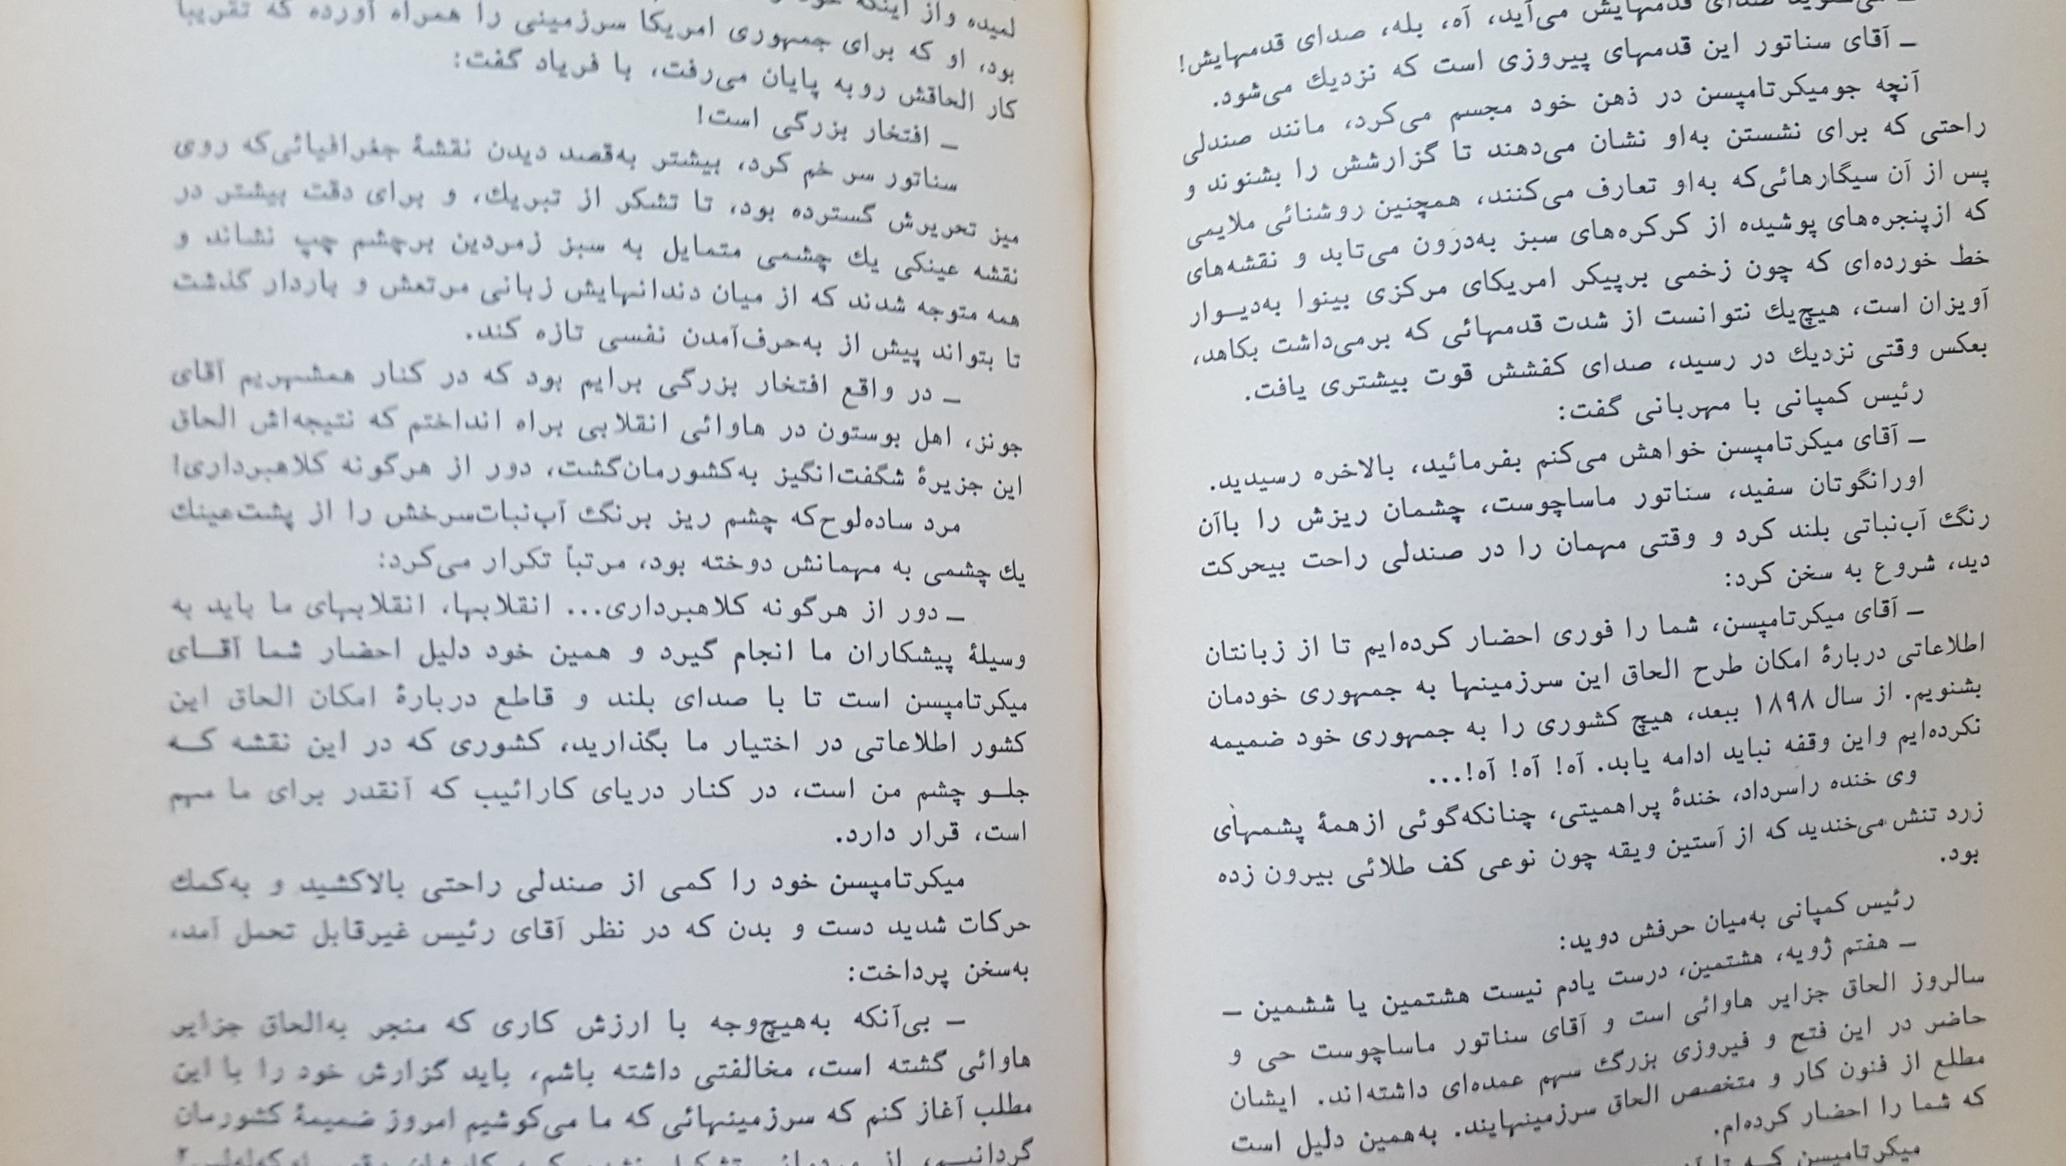 صدای قدمهایش می‌آید، آه، بله، صدای قدمهایش!
ـ آقای سناتور این قدمهای پیروزی است که نزدیك می‌شود.
آنچه جومیکرتامپسن در ذهن خود مجسم می‌کرد، مانند صندلی
راحتی که برای نشستن به‌او نشان می‌دهند تا گزارشش را بشنوند و
پس از آن سیگارهائی‌که به‌او تعارف می‌کنند، همچنین روشنائی ملایمی
که ازپنجره‌های پوشیده از کرکره‌های سبز به‌درون می‌تابد و نقشه‌های
خط خورده‌ای که چون زخمی برپیکر امریکای مرکزی بینوا به‌دیـوار
آویزان است، هیچ‌یك نتوانست از شدت قدمهائی که برمی‌داشت بکاهد،
بعکس وقتی نزدیك در رسید، صدای کفشش قوت بیشتری یافت.
رئیس کمپانی با مهربانی گفت:
ـ آقای میکرتامپسن خواهش می‌کنم بفرمائید، بالاخره رسیدید.
اورانگوتان سفید، سناتور ماساچوست، چشمان ریزش را باآن
رنگ آب‌نباتی بلند کرد و وقتی مهمان را در صندلی راحت بیحرکت
دید، شروع به سخن کرد:
ـ آقای میکرتامپسن، شما را فوری احضار کرده‌ایم تا از زبانتان
اطلاعاتی دربارهٔ امکان طرح الحاق این سرزمینها به جمهوری خودمان
بشنویم. از سال ۱۸۹۸ ببعد، هیچ کشوری را به جمهوری خود ضمیمه
نکرده‌ایم واین وقفه نباید ادامه یابد. آه! آه! آه!...
وی خنده راسرداد، خندهٔ پراهمیتی، چنانکه‌گوئی ازهمهٔ پشمهای
زرد تنش می‌خندید که از آستین ویقه چون نوعی کف طلائی بیرون زده
بود.
رئیس کمپانی به‌میان حرفش دوید:
ـ هفتم ژویه، هشتمین، درست یادم نیست هشتمین یا ششمین ـ
سالروز الحاق جزایر هاوائی است و آقای سناتور ماساچوست حی و
حاضر در این فتح و فیروزی بزرگ سهم عمده‌ای داشته‌اند. ایشان
مطلع از فنون کار و متخصص الحاق سرزمینهایند. به‌همین دلیل است
که شما را احضار کرده‌ام.
میکرتامپسن کـه
لمیده واز اینکه
بود، او که برای جمهوری امریکا سرزمینی را همراه آورده که تقریبا
کار الحاقش روبه پایان می‌رفت، با فریاد گفت:
ـ افتخار بزرگی است!
سناتور سر خم کرد، بیشتر به‌قصد دیدن نقشهٔ جغرافیائی‌که روی
میز تحریرش گسترده بود، تا تشکر از تبریك، و برای دقت بیشتر در
نقشه عینکی یك چشمی متمایل به سبز زمردین برچشم چپ نشاند و
همه متوجه شدند که از میان دندانهایش زبانی مرتعش و باردار گذشت
تا بتواند پیش از به‌حرف‌آمدن نفسی تازه کند.
ـ در واقع افتخار بزرگی برایم بود که در کنار همشهریم آقای
جونز، اهل بوستون در هاوائی انقلابی براه انداختم که نتیجه‌اش الحاق
این جزیرهٔ شگفت‌انگیز به‌کشورمان‌گشت، دور از هرگونه کلاهبرداری!
مرد ساده‌لوح‌که چشم ریز برنگ آب‌نبات‌سرخش را از پشت‌عینك
یك چشمی به مهمانش دوخته بود، مرتباً تکرار می‌کرد:
ـ دور از هرگونه کلاهبرداری... انقلابها، انقلابهای ما باید به
وسیلهٔ پیشکاران ما انجام گیرد و همین خود دلیل احضار شما آقـای
میکرتامپسن است تا با صدای بلند و قاطع دربارهٔ امکان الحاق این
کشور اطلاعاتی در اختیار ما بگذارید، کشوری که در این نقشه کـه
جلـو چشم من است، در کنار دریای کارائیب که آنقدر برای ما مهم
است، قرار دارد.
میکرتامپسن خود را کمی از صندلی راحتی بالاکشید و به‌کمك
حرکات شدید دست و بدن که در نظر آقای رئیس غیرقابل تحمل آمد،
به‌سخن پرداخت:
ـ بی‌آنکه به‌هیچ‌وجه با ارزش کاری که منجر به‌الحاق جزایر
هاوائی گشته است، مخالفتی داشته باشم، باید گزارش خود را با این
مطلب آغاز کنم که سرزمینهائی که ما می‌کوشیم امروز ضمیمهٔ کشورمان
گردانیـم، از